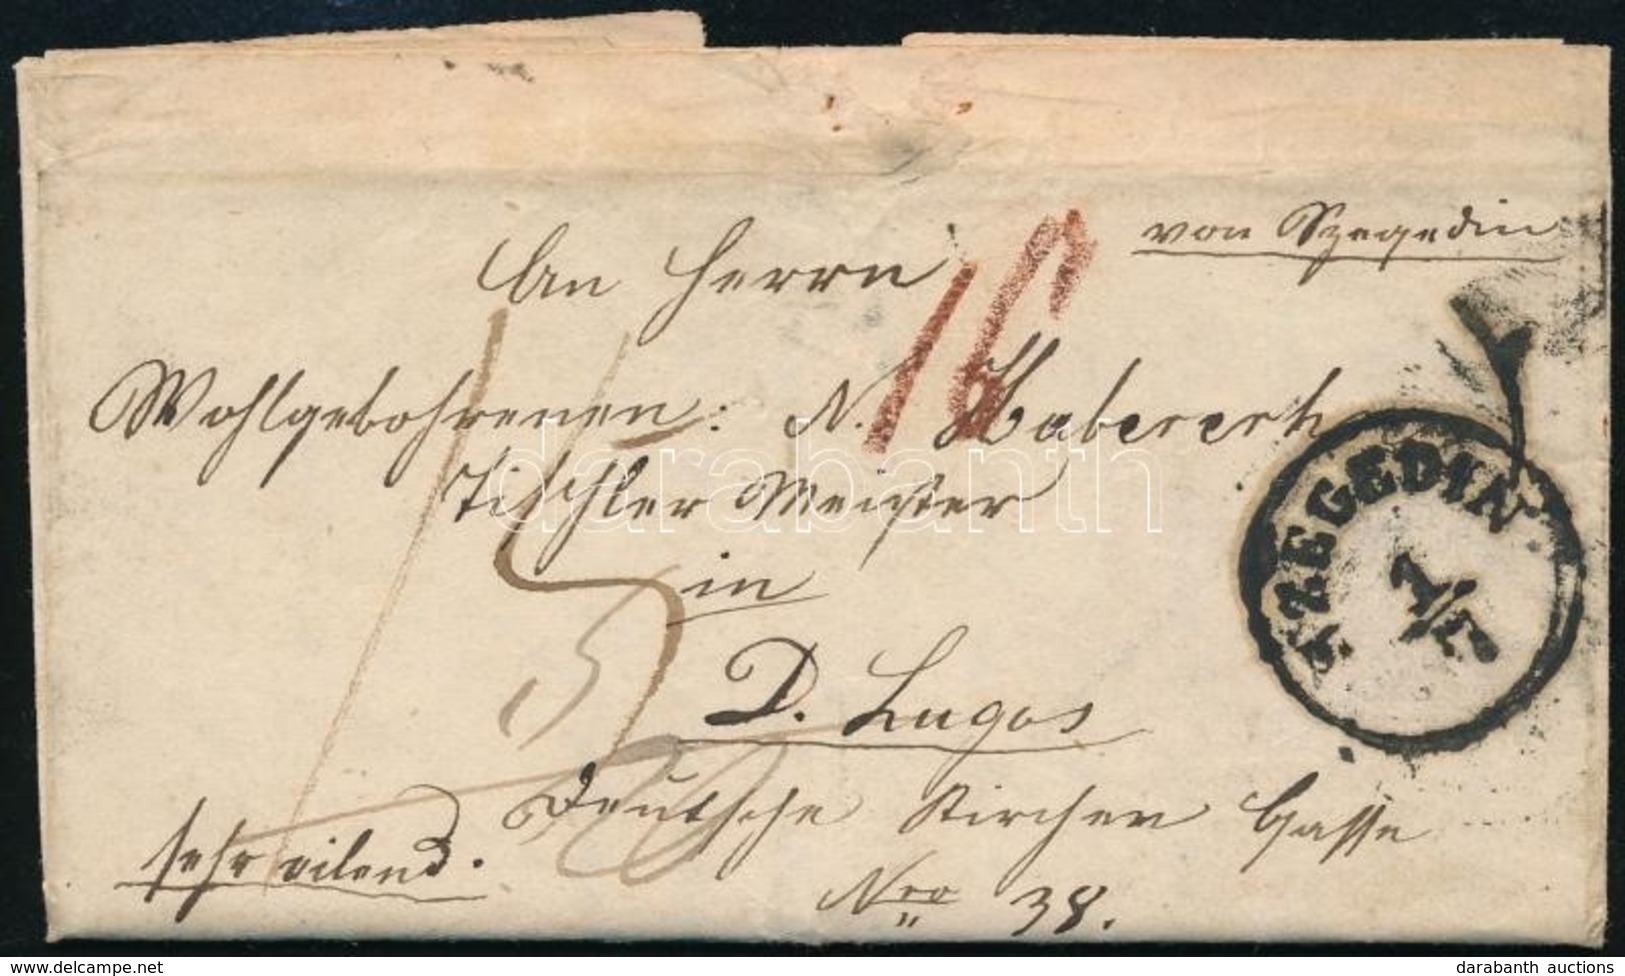 von Szegedin
An Herrn
16
Wohlgebohrenen: N. Haberech
Tischler Meister
in
D. Lugos
Deutsche Kirchen Gasse
Nro 38.
sehr eilend.
SZEGEDIN
1/7
15
darabanth
darabanth auctions